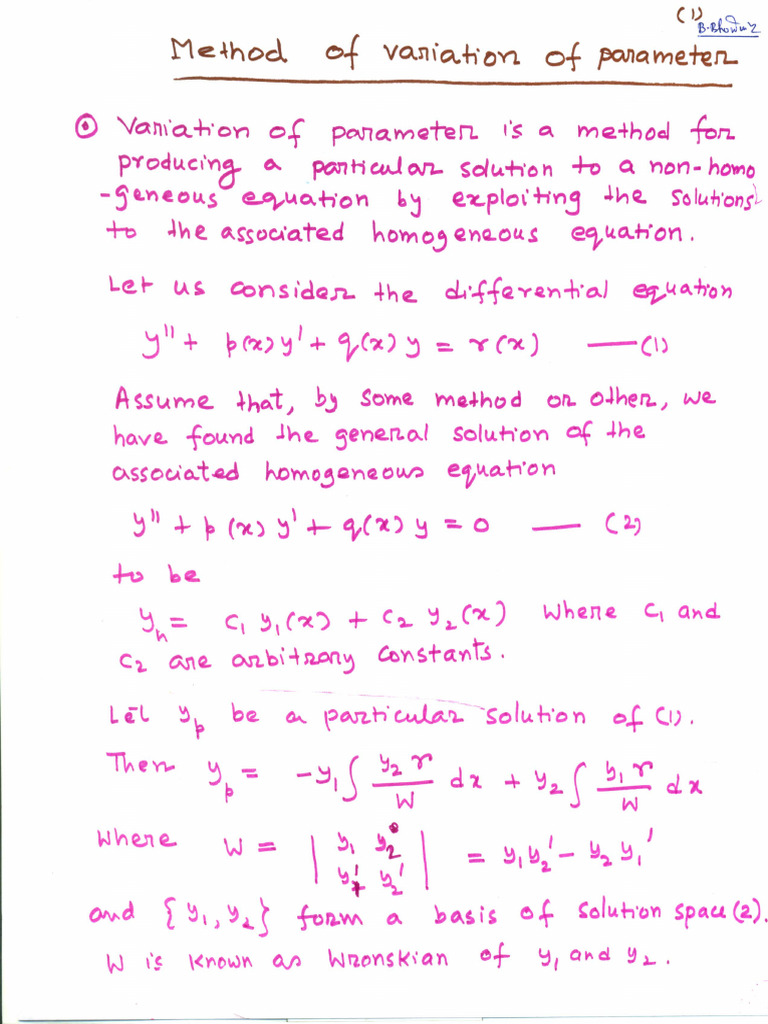 (1)
B.Bhowmik
Method of variation of parameter
⊙ Variation of parameter is a method for
producing a particular solution to a non-homo
-geneous equation by exploiting the solutions
to the associated homogeneous equation.
Let us consider the differential equation
y'' + p(x)y' + q(x) y = r(x) —(1)
Assume that, by some method or other, we
have found the general solution of the
associated homogeneous equation
y'' + p(x) y' + q(x) y = 0 — (2)
to be
y_h = c_1 y_1(x) + c_2 y_2(x) where c_1 and
c_2 are arbitrary constants.
Let y_p be a particular solution of (1).
Then y_p = -y_1 ∫ y_2 r / W dx + y_2 ∫ y_1 r / W dx
where W = | y_1 y_2 ; y_1' y_2' | = y_1 y_2' - y_2 y_1'
and {y_1, y_2} form a basis of solution space (2).
W is known as Wronskian of y_1 and y_2.